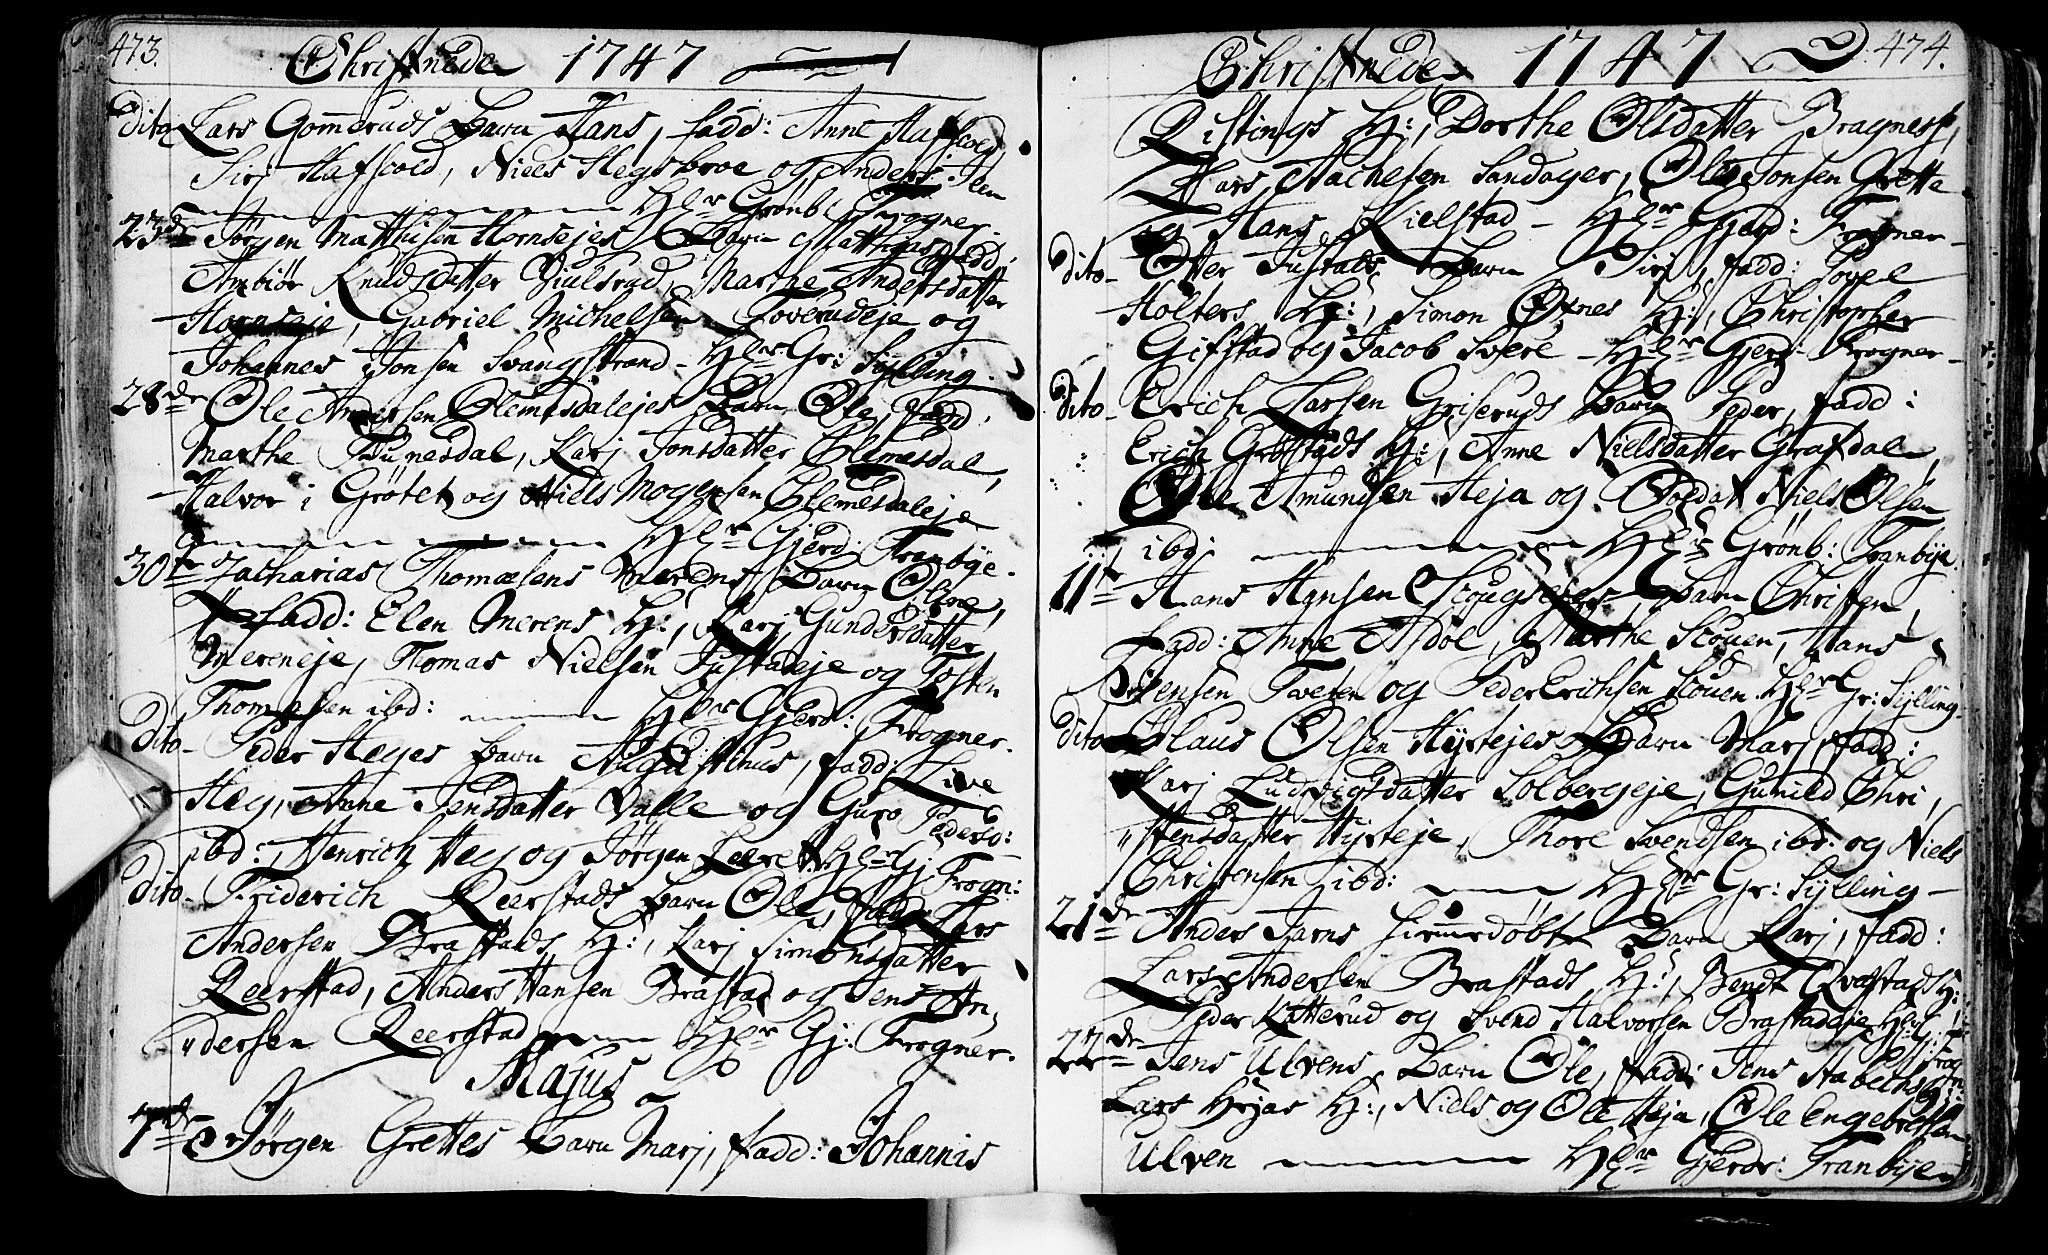 473. Christnede 1747
Dito Lars Gomeruds Barn Hans, fadd: Anne Hafsvold
Siri Hafsvold, Niels Hegsbroe og Anders Teen
Hr Grønb: Frogner.
23de Jørgen Matthisen Hornsejes Barn Matthias, fadd:
Ambiør Knudsdatter Vjulsrud, Marthe Andersdatter
Hornseje, Gabriel Michelsen Toverudeje og
Johannes Jonsen Svangstrand - Hr Gr: Sylling.
28de Ole Andersen Clemesdalejes Barn Ole, fadd:
Marthe Tuunesdal, Karj Jonsdatter Clemesdal,
Halvor i Grøtet og Niels Mogensen Clemesdaleje
Hr Gjerd: Tranbye.
30te Zacharias Thomæsens Merens Barn Oline,
fadd: Elen Merens H:, Karj Gundersdatter
Mereneje, Thomas Nielsen Justadeje og Tosten
Thomæsen ibd: Hr Gjerd: Frogner.
Dito- Peder Heges Barn Augustinus, fadd: Live
Heg, Anne Jensdatter Valle og Guro Pedersd:
ibd:, Henrich Heg og Jørgen Leeret. Hr Gj: Frogn:
Dito- Friderich Reerstads Barn Ole, fadd: Lars
Andersen Brastads H:, Karj Simonsdatter
Reerstad, Anders Hansen Brastad og Jens An,
"dersen Reerstad Hr Gj: Frogner.
Majus
7de Jørgen Grettes Barn Marj, fadd: Johannis
Christnede 1747 474.
Qistings H:, Dorthe Olsdatter Bragness,
Lars Aachesen Sandager, Ole Jonsen Grette
og Hans Kielstad - Hr Gjerd: Frogner-
Dito- Otter Justads Barn Siri, fadd: Povel
Holters H:, Simon Oxnes H:, Christopher
Gifstad og Jacob Svere - Hr Gjerd- Frogner-
Dito- Erich Larsen Griseruds Barn Peder, fadd:
Erich Grøstads H:, Anne Nielsdatter Grafdal,
Ole Amundsen Heja og Soldat Niels Olsen
ibd: Hr Grønb: Tranbye.
11te Hans Hansen Skougsejes Barn Christen,
fadd: Anne Asdøl, Marthe Scouen, Hans
Sørensen Tveten og Peder Erichsen Scouen. Hr Gr: Sylling.
Dito Claus Olsen Hyrtejes Barn Marj, fadd:
Karj Ludvigsdatter Solbergeje, Gunild Chri,
"stensdatter Hyrteje, Thore Svendsen ibd: og Niels
Christensen ibd: Hr Gr: Sylling-
21de Anders Tarns hiemedøbte Barn Karj, fadd:
Lars Andersen Brastads H:, Bendt Qvastads H:
Peder Katterud og Svend Halvorsen Brastadeje Hr Gj: Frogn:
22de Jens Ulvens Barn Ole, fadd: Jens Habelns H:
Lars Hejas H:, Niels og Ole Heja, Ole Engebretsen
Ulven Hr Gjerdr: Tranbye